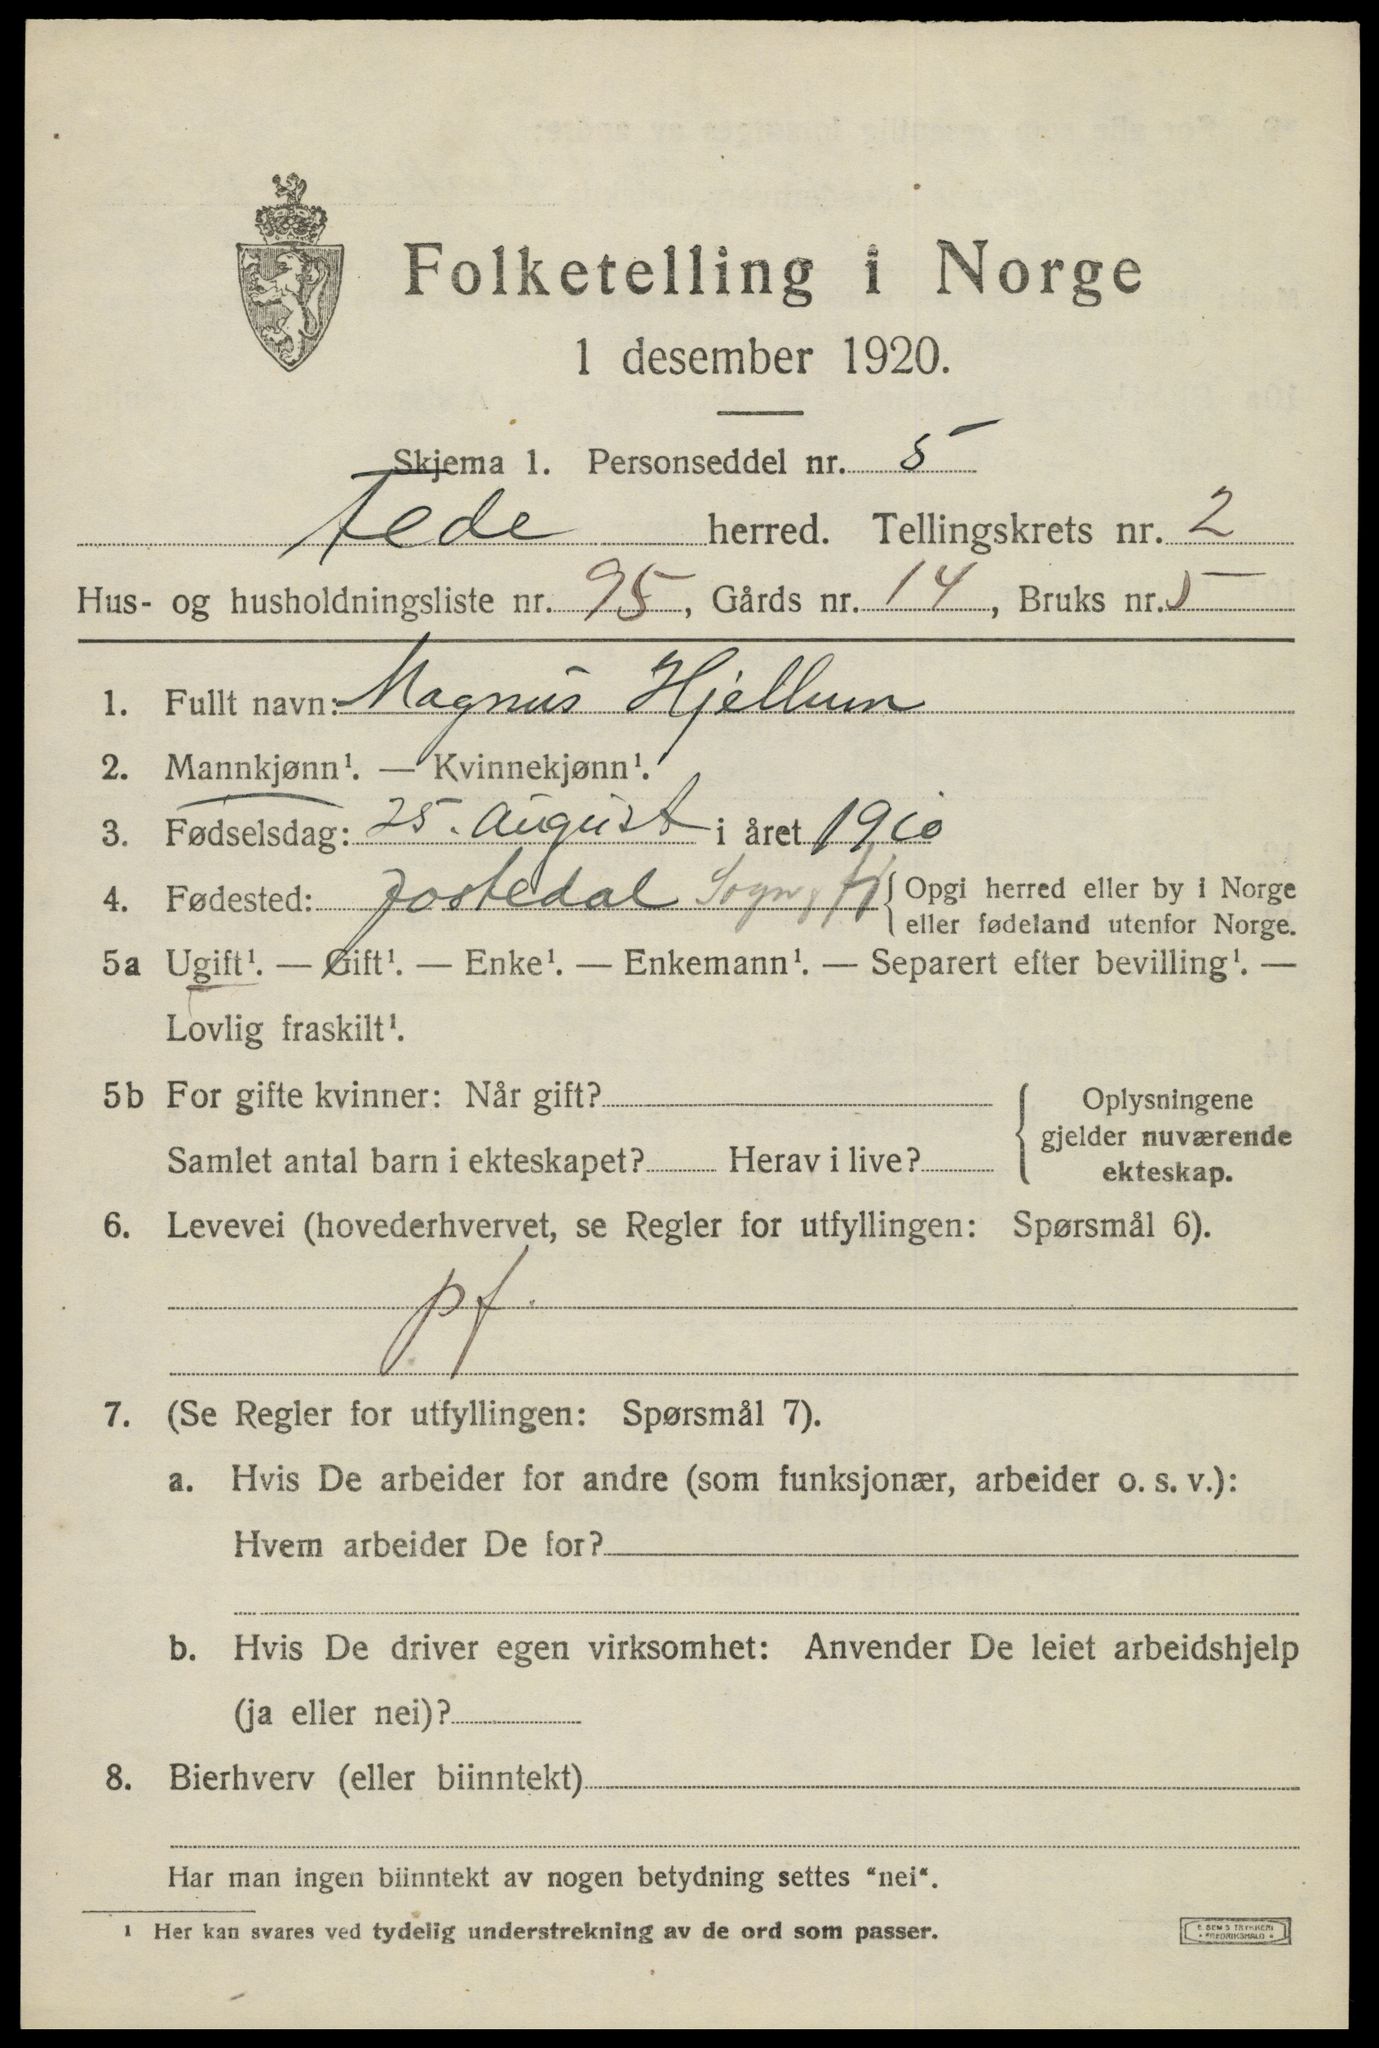 Folketelling i Norge
1 desember 1920.
Skjema 1. Personseddel nr. 5
Fede herred. Tellingskrets nr. 2
Hus- og husholdningsliste nr. 95, Gårds nr. 14, Bruks nr. 5
1. Fullt navn: Magnus Hjellum
2. Mannkjønn¹. — Kvinnekjønn¹.
3. Fødselsdag: 25. august i året 1910
4. Fødested: Jostedal Sogn, fj { Opgi herred eller by i Norge
eller fødeland utenfor Norge.
5a Ugift¹. — Gift¹. — Enke¹. — Enkemann¹. — Separert efter bevilling¹. —
Lovlig fraskilt¹.
5b For gifte kvinner: Når gift?
Samlet antal barn i ekteskapet? Herav i live?
Oplysningene
gjelder nuværende
ekteskap.
6. Levevei (hovederhvervet, se Regler for utfyllingen: Spørsmål 6).
pf.
7. (Se Regler for utfyllingen: Spørsmål 7).
a. Hvis De arbeider for andre (som funksjonær, arbeider o. s. v.):
Hvem arbeider De for?
b. Hvis De driver egen virksomhet: Anvender De leiet arbeidshjelp
(ja eller nei)?
8. Bierhverv (eller biinntekt)
Har man ingen biinntekt av nogen betydning settes "nei".
¹ Her kan svares ved tydelig understrekning av de ord som passer.
E. SEM'S TRYKKERI
FREDRIKSHALD